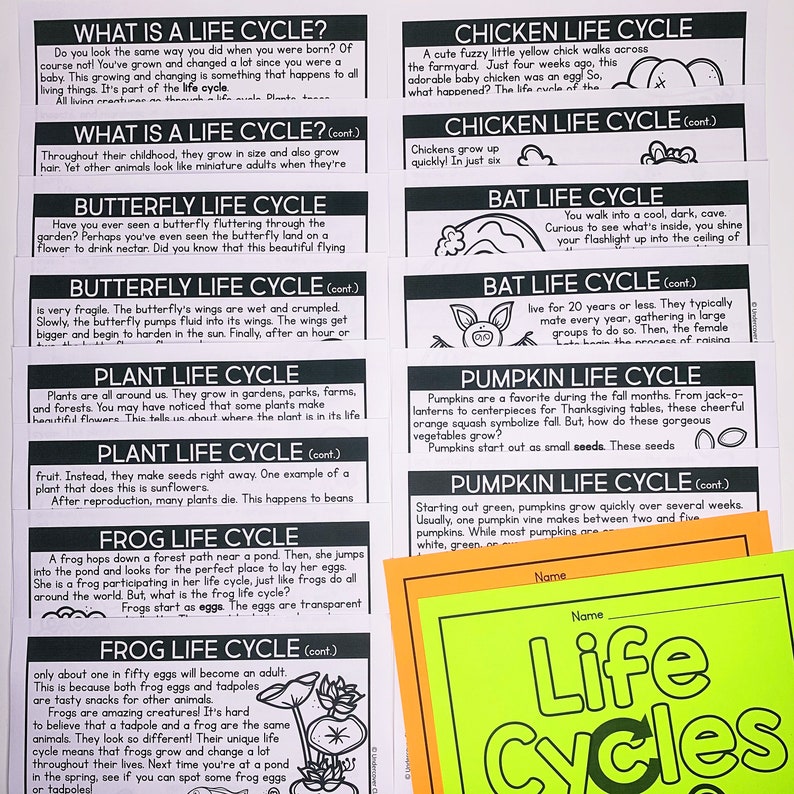 WHAT IS A LIFE CYCLE?
Do you look the same way you did when you were born? Of
course not! You've grown and changed a lot since you were a
baby. This growing and changing is something that happens to all
living things. It's part of the life cycle.
All living creatures go through a life cycle. Plants, trees,
WHAT IS A LIFE CYCLE? (cont.)
Throughout their childhood, they grow in size and also grow
hair. Yet other animals look like miniature adults when they're
BUTTERFLY LIFE CYCLE
Have you ever seen a butterfly fluttering through the
garden? Perhaps you've even seen the butterfly land on a
flower to drink nectar. Did you know that this beautiful flying
BUTTERFLY LIFE CYCLE (cont.)
is very fragile. The butterfly's wings are wet and crumpled.
Slowly, the butterfly pumps fluid into its wings. The wings get
bigger and begin to harden in the sun. Finally, after an hour or
PLANT LIFE CYCLE
Plants are all around us. They grow in gardens, parks, farms,
and forests. You may have noticed that some plants make
beautiful flowers. This tells us about where the plant is in its life
PLANT LIFE CYCLE (cont.)
fruit. Instead, they make seeds right away. One example of a
plant that does this is sunflowers.
After reproduction, many plants die. This happens to beans
FROG LIFE CYCLE
A frog hops down a forest path near a pond. Then, she jumps
into the pond and looks for the perfect place to lay her eggs.
She is a frog participating in her life cycle, just like frogs do all
around the world. But, what is the frog life cycle?
Frogs start as eggs. The eggs are transparent
FROG LIFE CYCLE (cont.)
only about one in fifty eggs will become an adult.
This is because both frog eggs and tadpoles
are tasty snacks for other animals.
Frogs are amazing creatures! It's hard
to believe that a tadpole and a frog are the same
animals. They look so different! Their unique life
cycle means that frogs grow and change a lot
throughout their lives. Next time you're at a pond
in the spring, see if you can spot some frog eggs
or tadpoles!
© Undercover
CHICKEN LIFE CYCLE
A cute fuzzy little yellow chick walks across
the farmyard. Just four weeks ago, this
adorable baby chicken was an egg! So,
what happened? The life cycle of the
CHICKEN LIFE CYCLE (cont.)
Chickens grow up
quickly! In just six
BAT LIFE CYCLE
You walk into a cool, dark, cave.
Curious to see what's inside, you shine
your flashlight up into the ceiling of
BAT LIFE CYCLE (cont.)
live for 20 years or less. They typically
mate every year, gathering in large
groups to do so. Then, the female
bats begin the process of raising
© Undercover
PUMPKIN LIFE CYCLE
Pumpkins are a favorite during the fall months. From jack-o-
lanterns to centerpieces for Thanksgiving tables, these cheerful
orange squash symbolize fall. But, how do these gorgeous
vegetables grow?
Pumpkins start out as small seeds. These seeds
PUMPKIN LIFE CYCLE (cont.)
Starting out green, pumpkins grow quickly over several weeks.
Usually, one pumpkin vine makes between two and five
pumpkins. While most pumpkins are
white, green, or
© Undercover
Name
Name
Life
Cycles